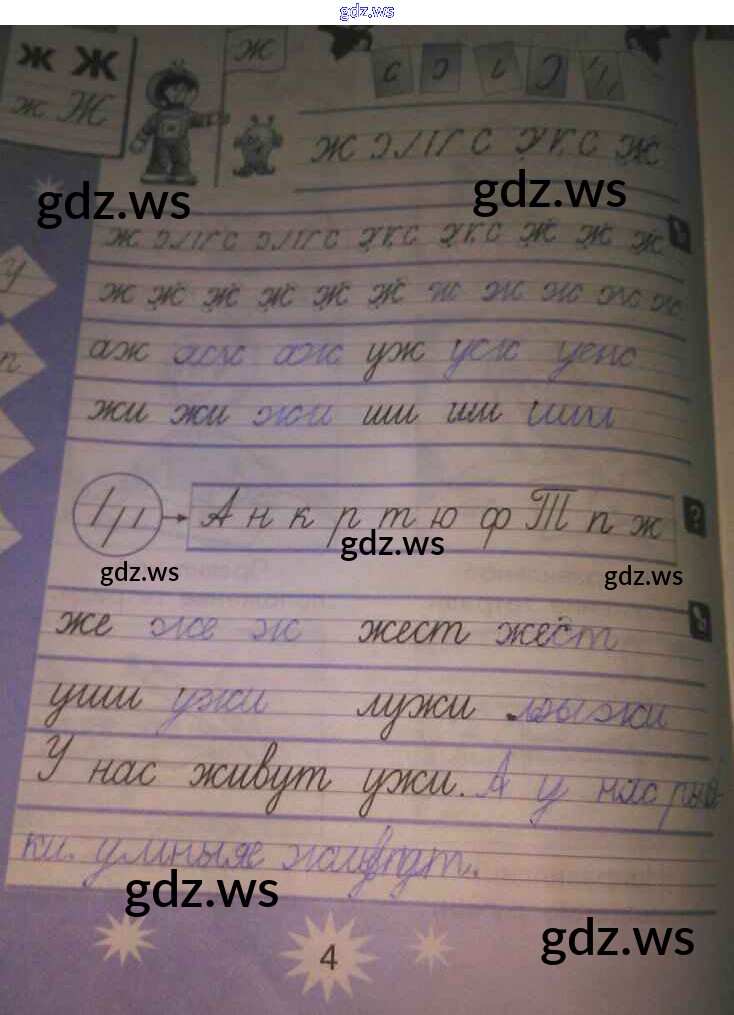 gdz.ws
ж Ж ж
ж Ж
ж с ж
gdz.ws gdz.ws
ж ж ж ж
ж ж ж ж ж ж ж ж ж ж ж
аж аж аж уж уж уж
жи жи жи ши ши ши
А н к р т ю ф Т п ж
gdz.ws
gdz.ws gdz.ws
же же ж жест жест
уши ужи лужи лыжи
У нас живут ужи. А у нас
ки. умные живут.
gdz.ws
gdz.ws
4